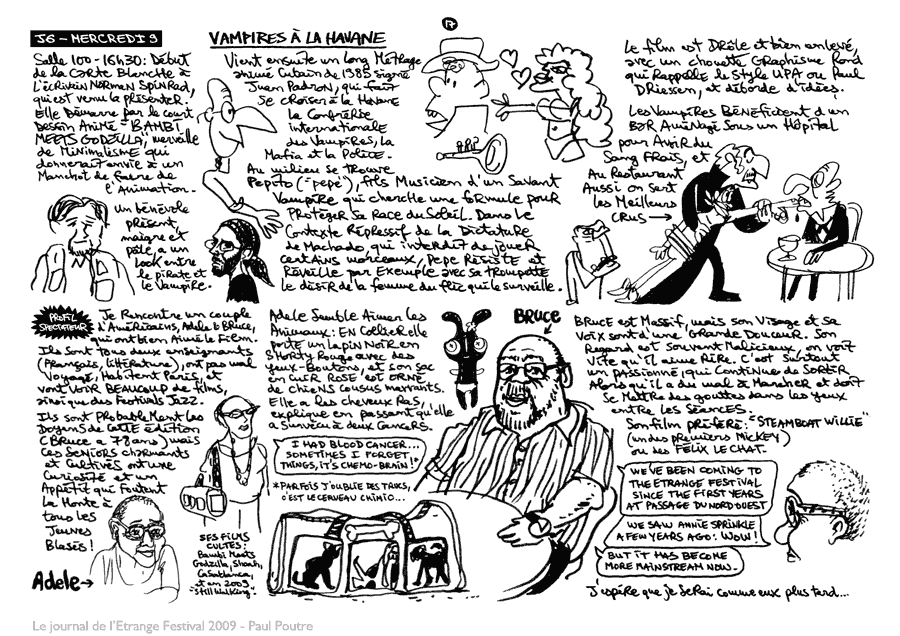 17
J6 - MERCREDI 9
Salle 100 - 16h30 : Début
de la Carte Blanche à
l'écrivain Norman Spinrad,
qui est venu la présenter.
Elle démarre par le court
dessin animé "BAMBI
MEETS GODZILLA", merveille
de minimalisme qui
donnerait envie à un
manchot de faire de
l'animation.
un bénévole
présent,
maigre et
pâle, a un
look entre
le pirate et
le vampire.
VAMPIRES À LA HAVANE
Vient ensuite un long métrage
animé cubain de 1985 signé
Juan Padron, qui fait
se croiser à la Havane
la Confrérie
internationale
des Vampires, la
Mafia et la Police.
Au milieu se trouve
Pepito (-Pepe), fils musicien d'un savant
vampire qui cherche une formule pour
protéger sa race du soleil. Dans le
contexte répressif de la dictature
de Machado, qui interdit de jouer
certains morceaux, Pepe résiste et
réveille par exemple avec sa trompette
le désir de la femme du flic qui le surveille.
Le film est drôle et bien enlevé,
avec un chouette graphisme rond
qui rappelle le style UPA ou Paul
Driessen, et déborde d'idées.
Les vampires bénéficient d'un
bar aménagé sous un hôpital
pour avoir du
sang frais, et
au restaurant
aussi on sert
les meilleurs
crus →
PROFIL
SPECTATEUR
Je rencontre un couple
d'Américains, Adele & Bruce,
qui ont bien aimé le film.
Ils sont tous deux enseignants
(Français, littérature), ont pas mal
voyagé, habitent Paris, et
vont voir BEAUCOUP de films,
ainsi que des festivals Jazz.
Ils sont probablement les
doyens de cette édition
(Bruce a 77 ans) mais
ces seniors charmants
et cultivés ont une
curiosité et un
appétit qui foutent
la honte à
tous les
jeunes
blasés !
Adele →
SES FILMS
CULTES :
Bambi Meets
Godzilla, Shoah,
Casablanca,
et en 2009
"Still Walking".
Adele semble aimer les
animaux : en collier elle
porte un lapin noir en
shorty rouge avec des
yeux-boutons, et son sac
en cuir rose est orné
de chiens cousus marrants.
Elle a les cheveux ras,
explique en passant qu'elle
a survécu à deux cancers.
I HAD BLOOD CANCER...
SOMETIMES I FORGET
THINGS, IT'S CHEMO-BRAIN! *
* PARFOIS J'OUBLIE DES TRUCS,
C'EST LE CERVEAU CHIMIO...
BRUCE
Bruce est massif, mais son visage et sa
voix sont d'une grande douceur. Son
regard est souvent malicieux, on voit
vite qu'il aime rire. C'est surtout
un passionné, qui continue de sortir
alors qu'il a du mal à marcher et doit
se mettre des gouttes dans les yeux
entre les séances.
Son film préféré : "STEAMBOAT WILLIE"
(un des premiers Mickey)
ou des FELIX LE CHAT.
WE'VE BEEN COMING TO
THE ETRANGE FESTIVAL
SINCE THE FIRST YEARS
AT PASSAGE DU NORD OUEST
WE SAW ANNIE SPRINKLE
A FEW YEARS AGO. WOW!
BUT IT HAS BECOME
MORE MAINSTREAM NOW.
J'espère que je serai comme eux plus tard...
Le journal de l'Etrange Festival 2009 - Paul Poutre